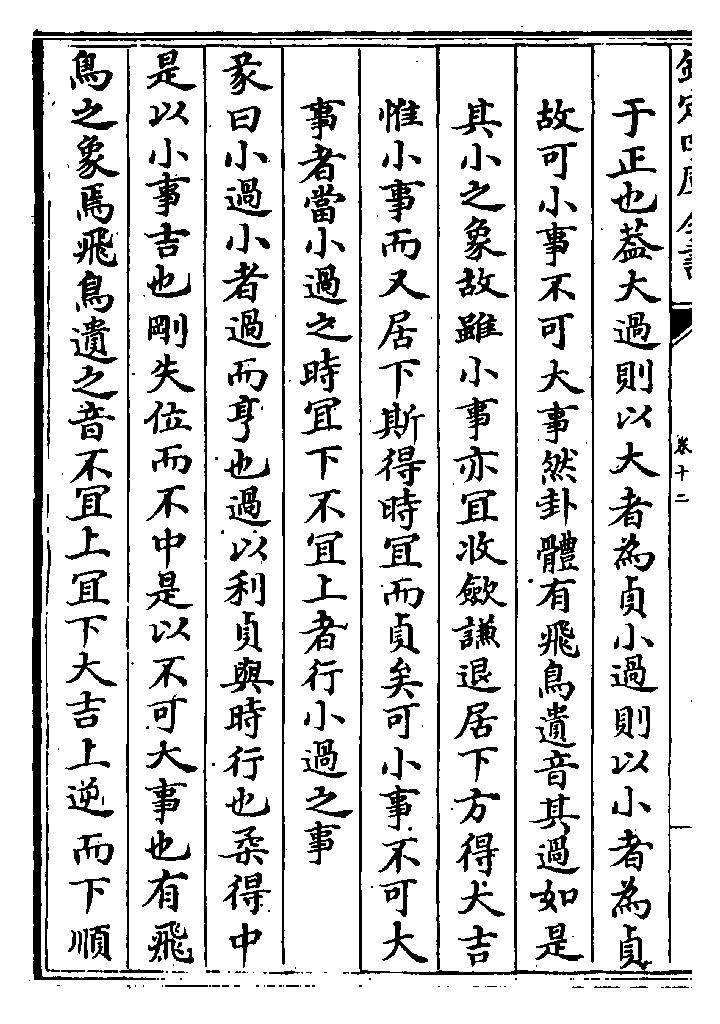 欽定四庫全書
卷十二
于正也葢大過則以大者為貞小過則以小者為貞
故可小事不可大事然卦體有飛鳥遺音其過如是
其小之象故雖小事亦宜收斂謙退居下方得大吉
惟小事而又居下斯得時宜而貞矣可小事不可大
事者當小過之時宜下不宜上者行小過之事
彖曰小過小者過而亨也過以利貞與時行也柔得中
是以小事吉也剛失位而不中是以不可大事也有飛
鳥之象焉飛鳥遺之音不宜上宜下大吉上逆而下順